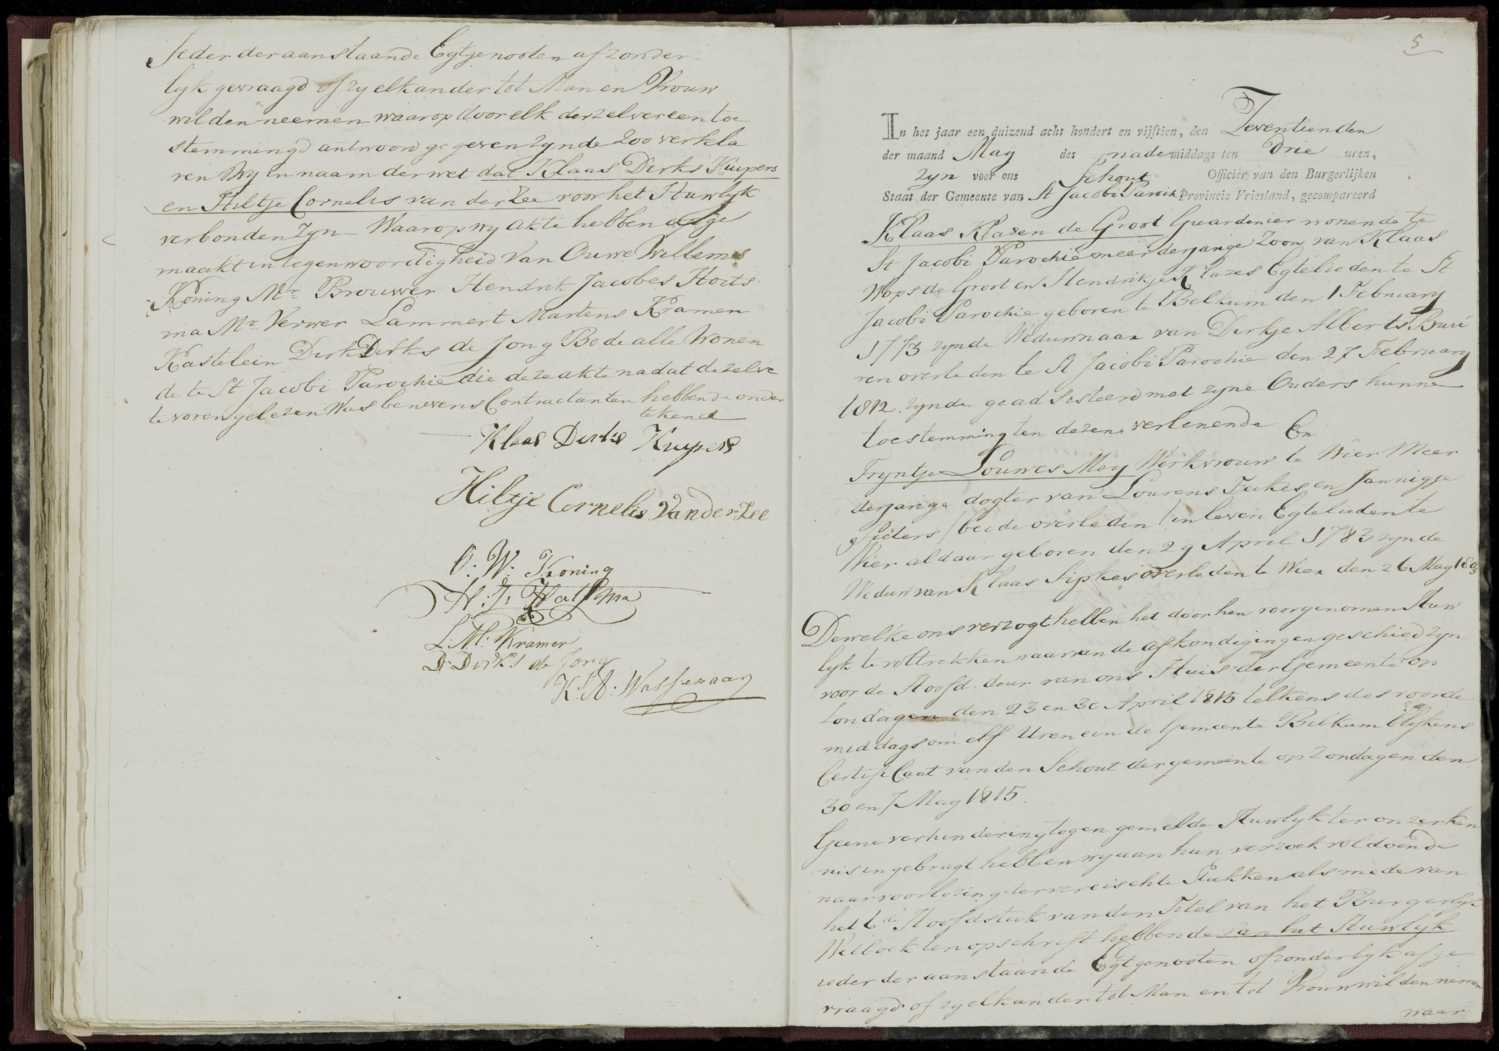 Ieder der aanstaande Egtgenooten afzonder
lyk gevraagd of zy elkander tot Man en Vrouw
wilden neemen waarop door elk derzelver een toe
stemmingd antwoord gegeven zynde zoo verkla
ren Wy in naam der wet dat Klaas Dirks Kuypers
en Hiltje Cornelis van der Zee voor het Huwlyk
verbonden zyn – Waarop wy akte hebben afge
maakt in tegenwoordigheid van Ouwe Willems
Koning Mr Brouwer Hendrik Jacobes Hoits
ma Mr Verwer Lammert Martens Kramer
Kastelein Dirk Dirks de Jong Bode alle Wonen
de te St Jacobi Parochie die deze akte na dat dezelve
te voren gelezen Was benevens Contractanten hebbende onder
tekend
Klaas Dirks Kuypers
Hiltje Cornelis Van der Zee
O: W: Koning
H: J: Halsema
L: M: Kramer
D: Dirks de Jong
K: A: Wassenaar
5
In het jaar een duizend acht hondert en vijftien, den Zeventienden
der maand May des nademiddags ten Drie uren,
Zyn voor ons Schout Officier van den Burgerlijken
Staat der Gemeente van St Jacobi Parochie Provincie Vriesland, gecompareerd
Klaas Klazen de Groot Guardenier wonende te
St Jacobi Parochie meerderjange Zoon van Klaas
Wops de Groot en Hendrikje Klazes Egtelieden te St
Jacobi Parochie geboren te Belkum den 1 February
1773 zynde Weduwnaar van Dirkje Alberts Buu
ren overleden te St Jacobi Parochie den 27 February
1812 zynde geadsisteerd met zyne Ouders hunne
toestemming ten dezen verlenende En
Tryntje Louwes Mey Werkvrouw te Wier Meer
derjarige dogter van Lourens Tiekes en Jannigje
Pieters / beide overleden / in leven Egtelieden te
Wier aldaar geboren den 29 April 1783 zynde
Weduw van Klaas Sipkes overleden te Wier den 26 May 18
Dewelke ons verzogt hebben het door hen voorgenomen Huw
lyk te voltrekken waarvan de afkondigingen geschied zyn
voor de Hoofd deur van ons Huis der Gemeente op
Zondagen den 23 en 30 April 1815 telkens des voorde
middags om elf Uren en in de Gemeente Belkum blykens
Certificaat van den Schout der gemeente op Zondagen den
30 en 7 May 1815.
Geene verhindering tegen gemelde Huwlyk ter onzer ken
nis ingebragt hebben wy aan hun verzoek voldoende
naar voorlezing der vereischte Stukken als mede van
het 6de Hoofdstuk van den Titel van het Burgerlyk
Wetboek ten opschrift hebbende van het Huwlyk
ieder der aanstaande Egtgenooten afzonderlyk afge
vraagd of zy elkander tot Man en tot Vrouw wilden nemen
waar